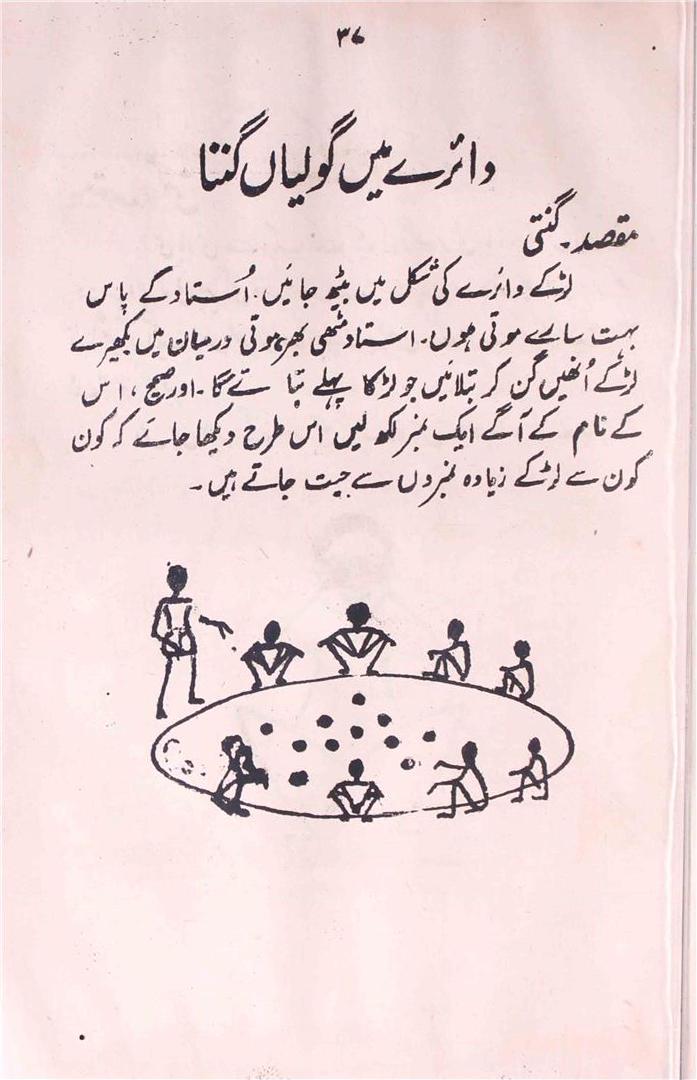 ۳۷
دائرے میں گولیاں گننا
مقصد۔ گنتی
لڑکے دائرے کی شکل میں بیٹھ جائیں۔ اُستاد کے پاس
بہت سارے موتی ہوں۔ استاد مٹھی بھر موتی درمیان میں بکھیرے
لڑکے اُنھیں گن کر بتلائیں جو لڑکا پہلے بتا ئے گا۔ اور صحیح، اس
کے نام کے آگے ایک نمبر لکھ لیں اس طرح دیکھا جائے کہ کون
کون سے لڑکے زیادہ نمبروں سے جیت جاتے ہیں۔